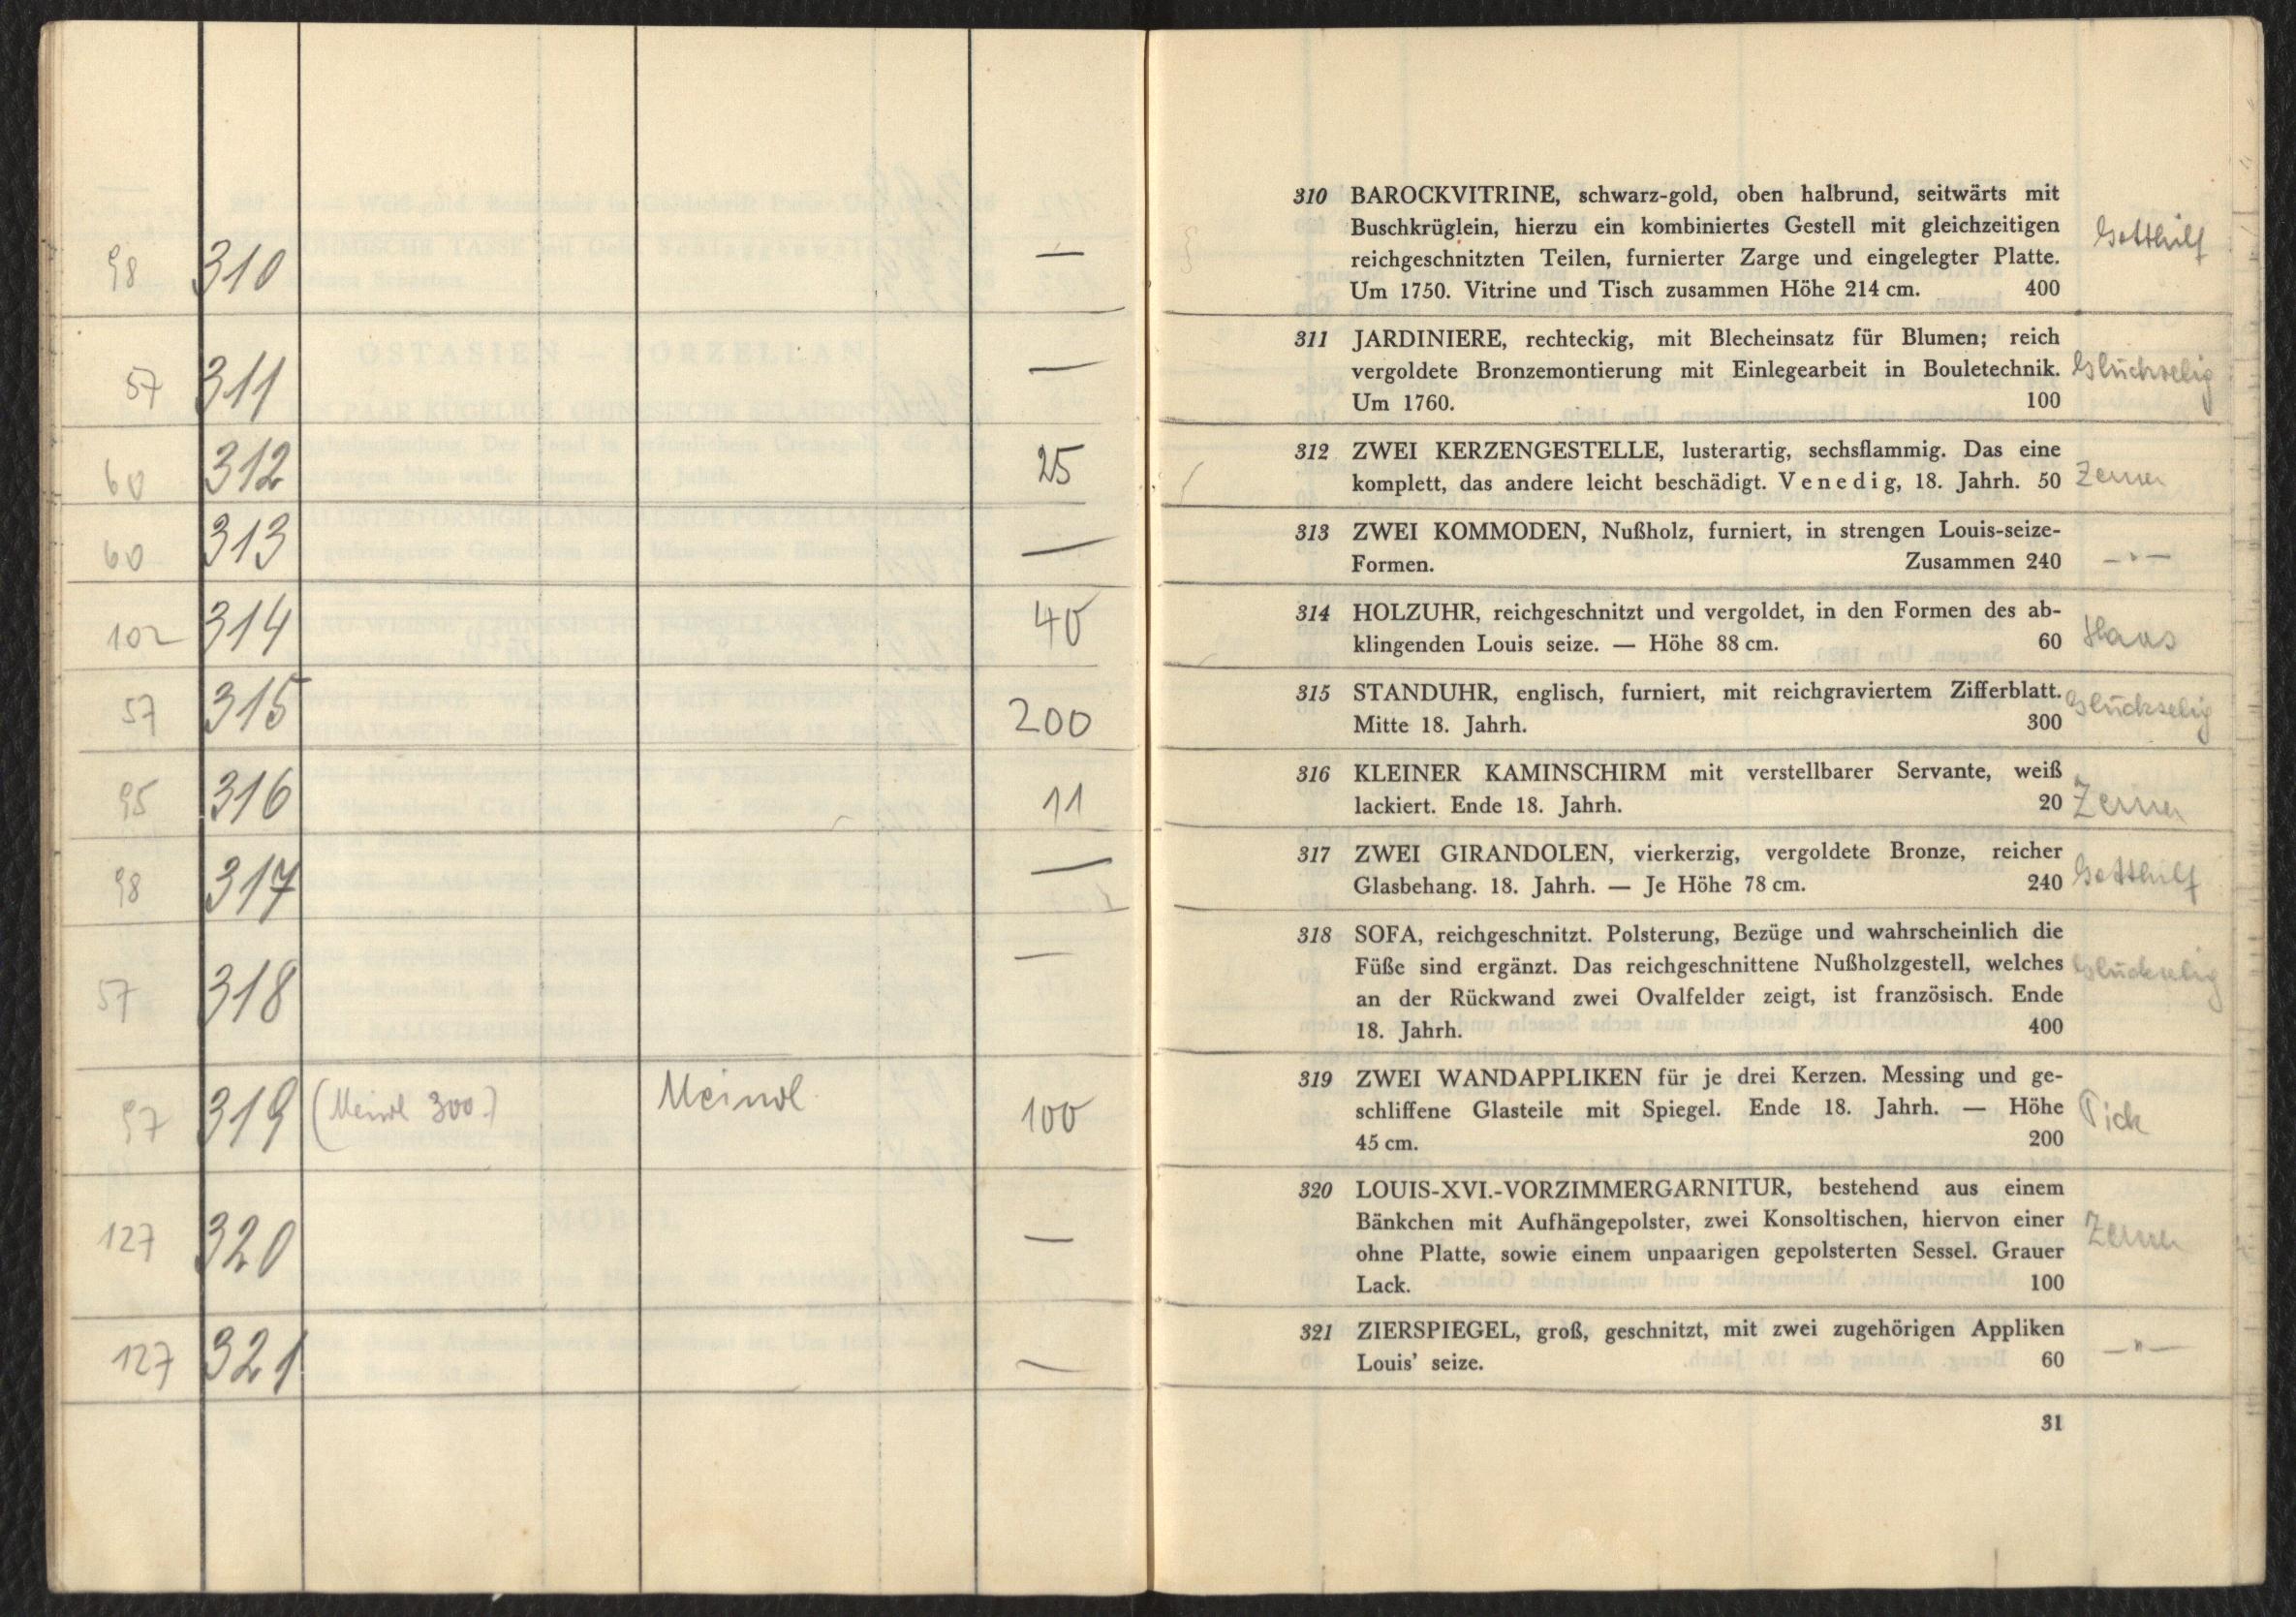 98 310 —
57 311 —
60 312 25
60 313 —
102 314 40
57 315 200
95 316 11
98 317 —
57 318 —
97 319 (Meinl 300.) Meinl 100
127 320 —
127 321 —
310 BAROCKVITRINE, schwarz-gold, oben halbrund, seitwärts mit
Buschkrüglein, hierzu ein kombiniertes Gestell mit gleichzeitigen
reichgeschnitzten Teilen, furnierter Zarge und eingelegter Platte.
Um 1750. Vitrine und Tisch zusammen Höhe 214 cm. 400
Gotthilf
311 JARDINIERE, rechteckig, mit Blecheinsatz für Blumen; reich
vergoldete Bronzemontierung mit Einlegearbeit in Bouletechnik.
Um 1760. 100
Glückselig
312 ZWEI KERZENGESTELLE, lusterartig, sechsflammig. Das eine
komplett, das andere leicht beschädigt. Venedig, 18. Jahrh. 50
Zerner
313 ZWEI KOMMODEN, Nußholz, furniert, in strengen Louis-seize-
Formen. Zusammen 240
—"—
314 HOLZUHR, reichgeschnitzt und vergoldet, in den Formen des ab-
klingenden Louis seize. — Höhe 88 cm. 60
Haas
315 STANDUHR, englisch, furniert, mit reichgraviertem Zifferblatt.
Mitte 18. Jahrh. 300
Glückselig
316 KLEINER KAMINSCHIRM mit verstellbarer Servante, weiß
lackiert. Ende 18. Jahrh. 20
Zerner
317 ZWEI GIRANDOLEN, vierkerzig, vergoldete Bronze, reicher
Glasbehang. 18. Jahrh. — Je Höhe 78 cm. 240
Gotthilf
318 SOFA, reichgeschnitzt. Polsterung, Bezüge und wahrscheinlich die
Füße sind ergänzt. Das reichgeschnittene Nußholzgestell, welches
an der Rückwand zwei Ovalfelder zeigt, ist französisch. Ende
18. Jahrh. 400
Glückselig
319 ZWEI WANDAPPLIKEN für je drei Kerzen. Messing und ge-
schliffene Glasteile mit Spiegel. Ende 18. Jahrh. — Höhe
45 cm. 200
Pick
320 LOUIS-XVI.-VORZIMMERGARNITUR, bestehend aus einem
Bänkchen mit Aufhängepolster, zwei Konsoltischen, hiervon einer
ohne Platte, sowie einem unpaarigen gepolsterten Sessel. Grauer
Lack. 100
Zerner
321 ZIERSPIEGEL, groß, geschnitzt, mit zwei zugehörigen Appliken
Louis' seize. 60
—"—
31